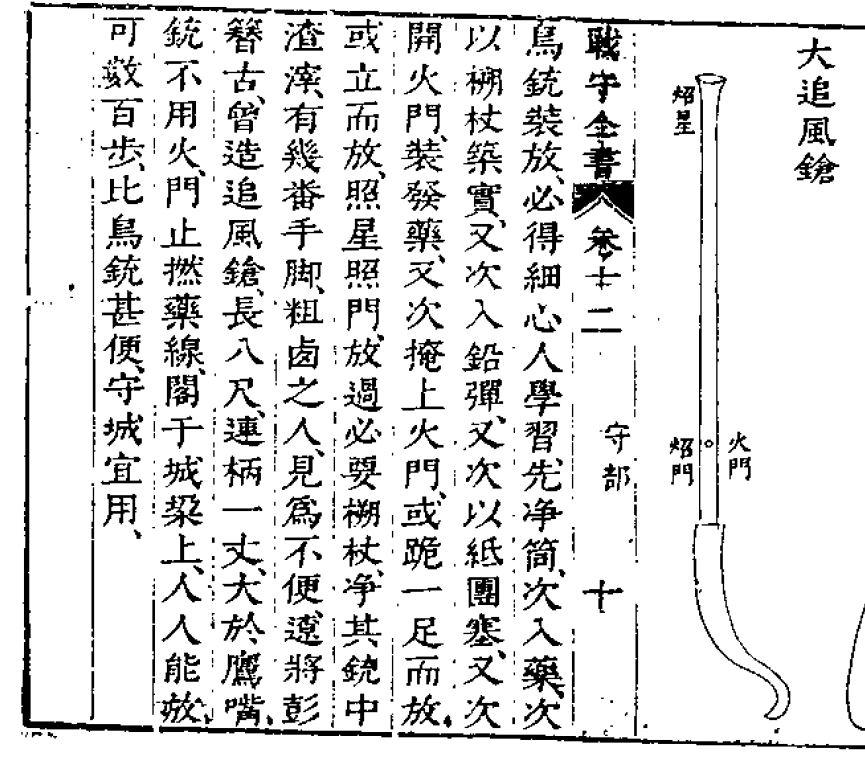 大追風鎗
炤星
火門
炤門
戰守全書 卷十二 守部 十
鳥銃裝放、必得細心人學習、先净筒、次入藥、次
以搠杖築實、又次入鉛彈、又次以紙團塞、又次
開火門、裝發藥、又次掩上火門、或跪一足而放、
或立而放、照星照門、放過必要搠杖、净其銃中
渣滓、有幾番手脚、粗鹵之人、見爲不便、遼將彭
簪古、曾造追風鎗、長八尺、連柄一丈、大於鷹嘴、
銃不用火門、止撚藥線、閣于城垜上、人人能放、
可數百步、比鳥銃甚便、守城宜用、